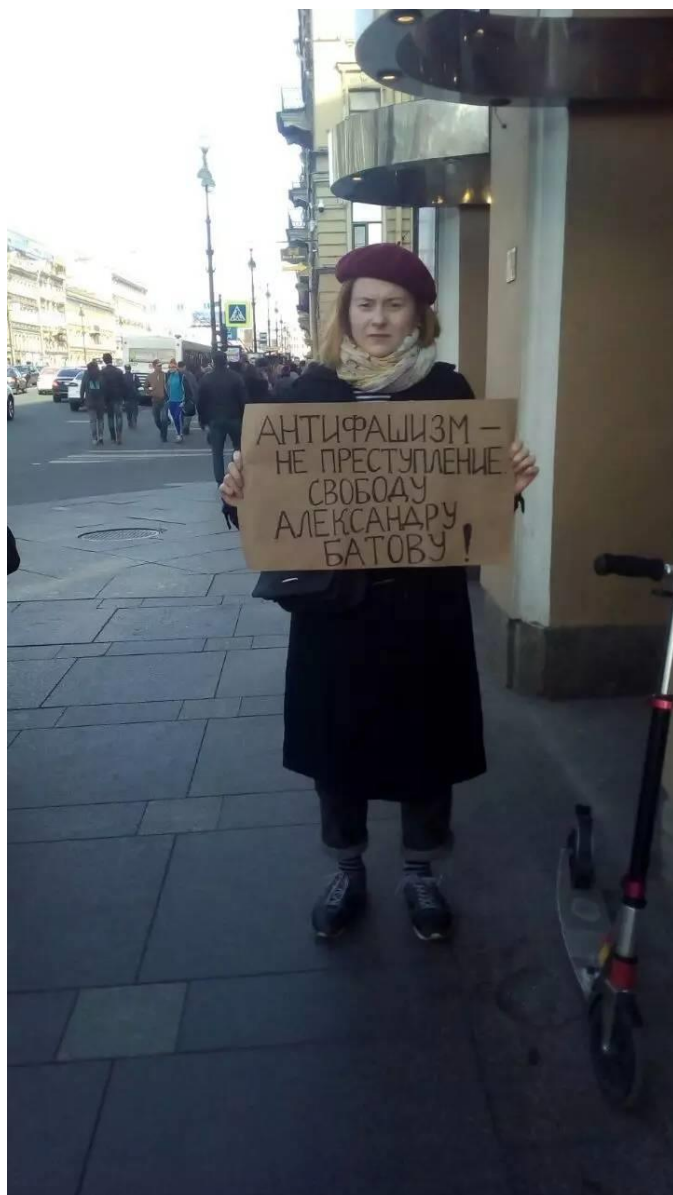 АНТИФАШИЗМ –
НЕ ПРЕСТУПЛЕНИЕ
СВОБОДУ
АЛЕКСАНДРУ
БАТОВУ !